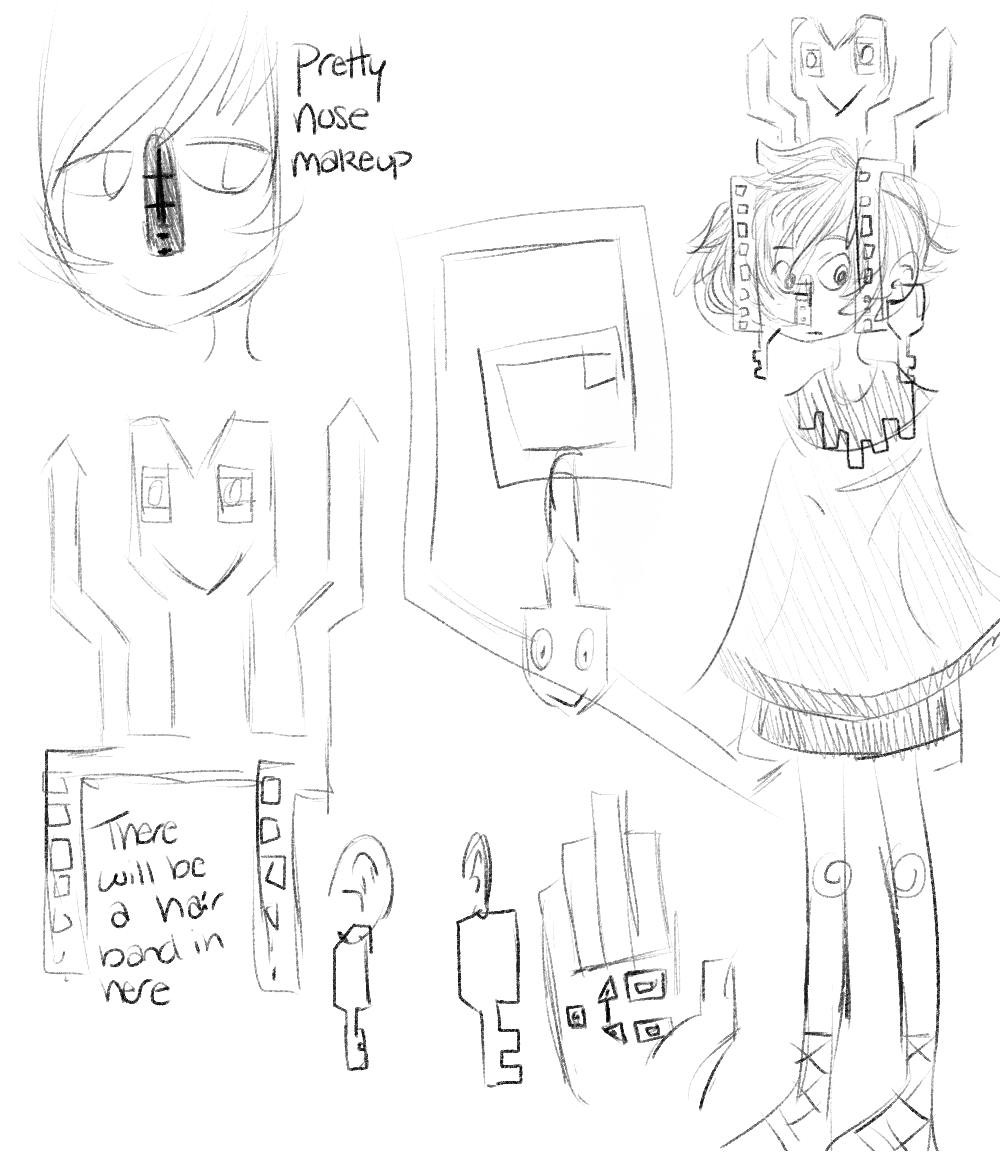 Pretty
nose
makeup
There
will be
a hair
band in
here